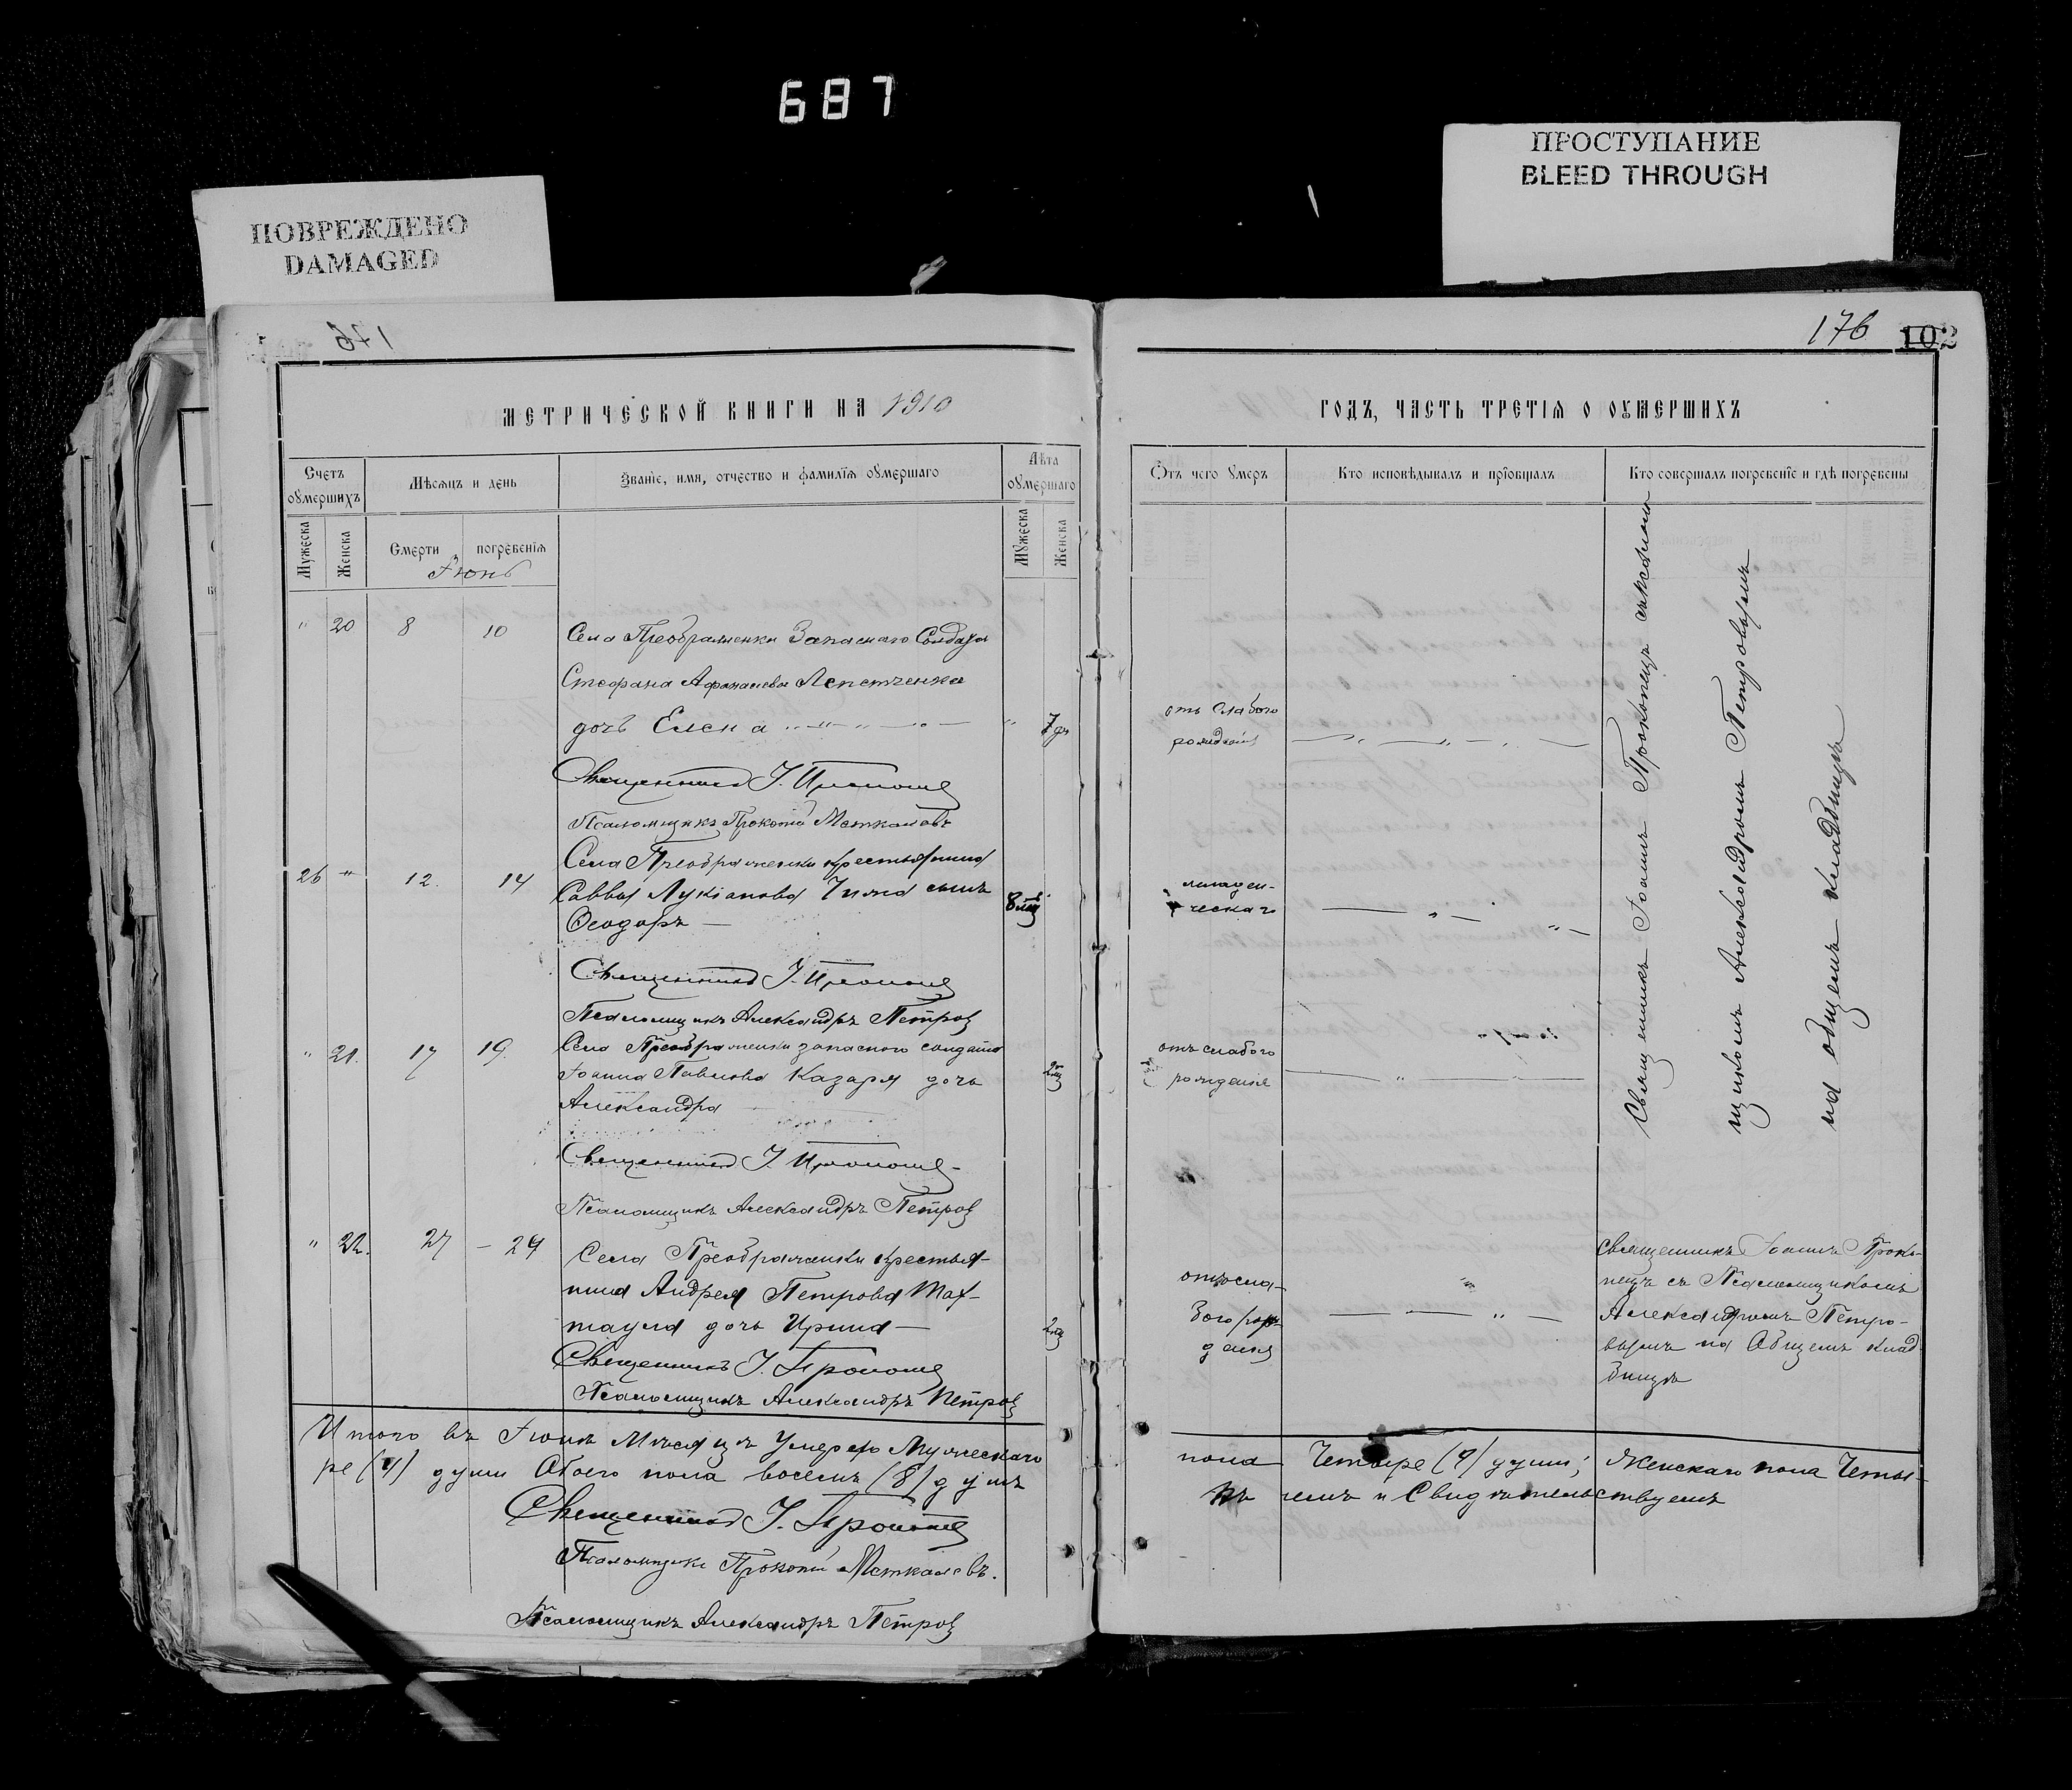 687
ПОВРЕЖДЕНО
DAMAGED
ПРОСТУПАНИЕ
BLEED THROUGH
176
102
МЕТРИЧЕСКОЙ КНИГИ НА 1910
ГОДЪ, ЧАСТЬ ТРЕТІЯ О ОУМЕРШИХЪ
Счетъ оумершихъ
Мѣсяцъ и день
Званіе, имя, отчество и фамилія оумершаго
Лѣта оумершаго
Отъ чего умеръ
Кто исповѣдывалъ и пріобщалъ
Кто совершалъ погребеніе и гдѣ погребены
Мужеска
Женска
Смерти
погребенія
Мужеска
Женска
Іюнь
" 20 8 10 Села Преображенки Запаснаго Солдата
Стефана Афанасіева Лепетченка
дочь Елена " 7 дн
отъ слабого
рожденія
Священникъ І. Прокопецъ
Псаломщикъ Прокопій Меткаловъ
26 " 12. 14 Села Преображенки крестьянина
Саввы Лукіанова сынъ
Ѳеодоръ — 8 мц
младен-
ческаго
Священникъ І. Прокопецъ
Псаломщикъ Александръ Петровъ
" 21. 17 19. Села Преображенки запасного солдата
Іоанна Павлова Казаря дочь
Александра
отъ слабого
рожденія
Священникъ І. Прокопецъ
Псаломщикъ Александръ Петровъ
Священникъ Іоаннъ Прокопецъ съ псаломо
щикомъ Александромъ Петровымъ
на общемъ кладбищѣ
" 22. 27 — 29 Села Преображенки крестья-
нина Андрея Петрова
дочь Ирина — 2 мц
отъ сла-
бого рож-
денія
Священникъ Іоаннъ Проко-
пецъ съ Псаломщикомъ
Александромъ Петро-
вымъ на Общемъ клад-
бищѣ
Священникъ І. Прокопецъ
Псаломщикъ Александръ Петровъ
Итого въ Іюнѣ Мѣсяцѣ Умерло Мужескаго
пола Четыре (4) души; Женскаго пола Четы-
ре (4) души Обоего пола восемь (8) душъ
въ чемъ и Свидѣтельствуемъ
Священникъ І. Прокопецъ
Псаломщикъ Прокопій Меткаловъ.
Псаломщикъ Александръ Петровъ